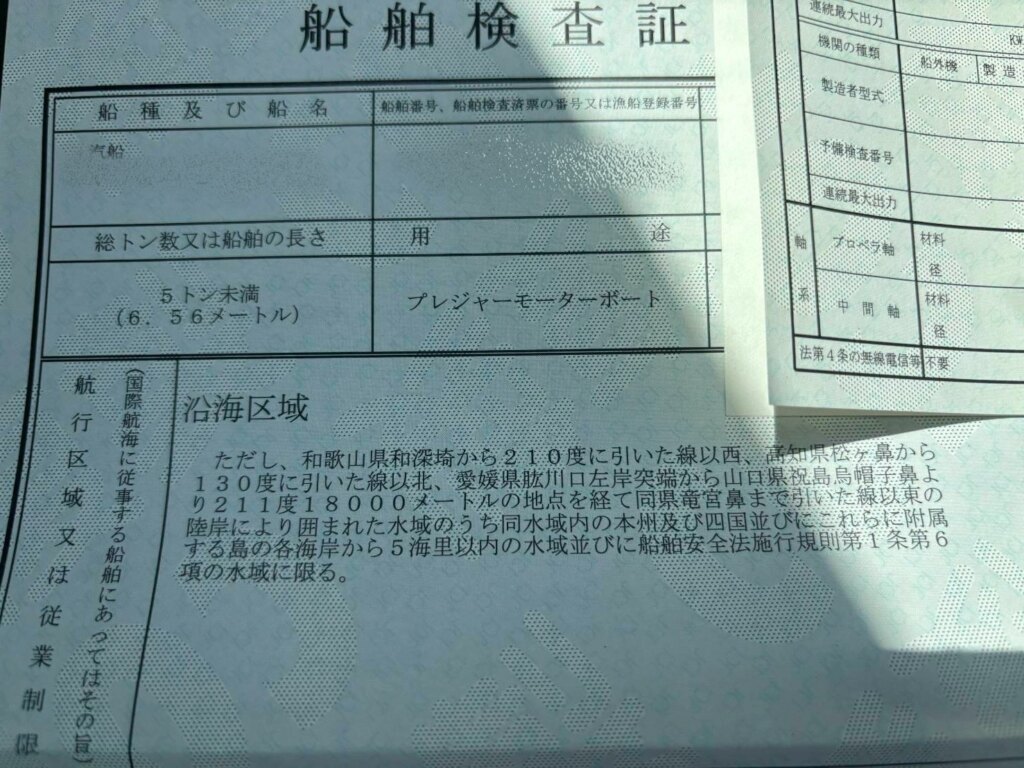 船舶検査証
船種及び船名
船舶番号、船舶検査済票の番号又は漁船登録番号
汽船
総トン数又は船舶の長さ
用途
5トン未満
（6．56メートル）
プレジャーモーターボート
航行区域又は従業制限
（国際航海に従事する船舶にあってはその旨）
沿海区域
ただし、和歌山県和深埼から210度に引いた線以西、高知県松ヶ鼻から
130度に引いた線以北、愛媛県肱川口左岸突端から山口県祝島烏帽子鼻よ
り211度18000メートルの地点を経て同県竜宮鼻まで引いた線以東の
陸岸により囲まれた水域のうち同水域内の本州及び四国並びにこれらに附属
する島の各海岸から5海里以内の水域並びに船舶安全法施行規則第1条第6
項の水域に限る。
連続最大出力
KW
機関の種類
船外機
製造
製造者型式
予備検査番号
連続最大出力
軸系
プロペラ軸
材料
径
中間軸
材料
径
法第4条の無線電信等
不要